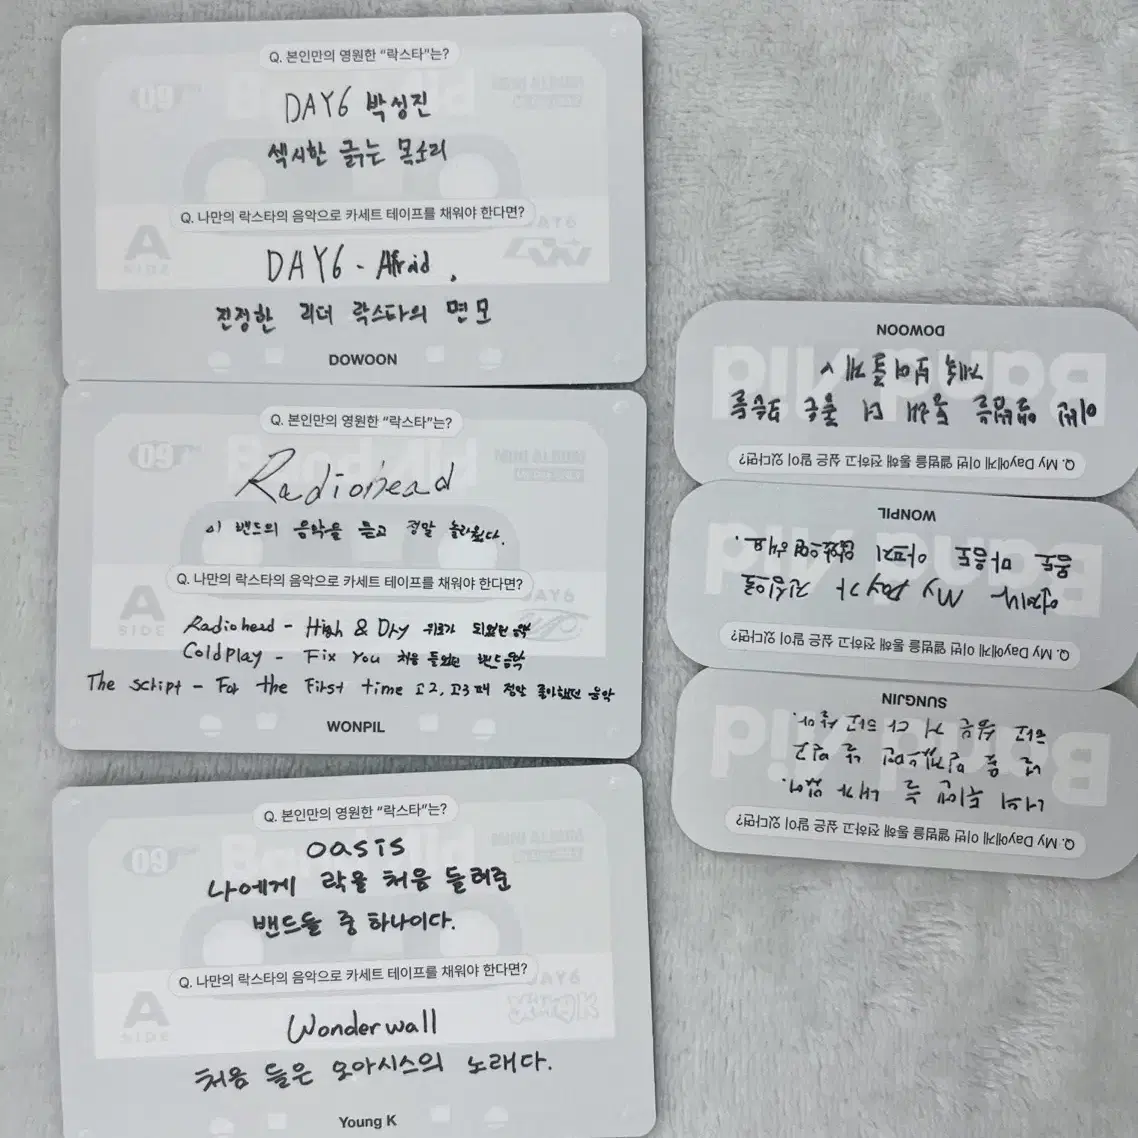 Q. 본인만의 영원한 “락스타”는?
DAY6 박성진
섹시한 긁는 목소리
Q. 나만의 락스타의 음악으로 카세트 테이프를 채워야 한다면?
DAY6 - Afraid.
진정한 리더 락스타의 면모
DOWOON
Q. 본인만의 영원한 “락스타”는?
Radiohead
이 밴드의 음악을 듣고 정말 놀라웠다.
Q. 나만의 락스타의 음악으로 카세트 테이프를 채워야 한다면?
Radiohead - High & Dry 위로가 되었던 음악
Coldplay - Fix You 처음 들었던 밴드음악
The script - For the First time 고2, 고3때 정말 좋아했던 음악
WONPIL
Q. 본인만의 영원한 “락스타”는?
oasis
나에게 락을 처음 들려준
밴드들 중 하나이다.
Q. 나만의 락스타의 음악으로 카세트 테이프를 채워야 한다면?
Wonderwall
처음 들은 오아시스의 노래다.
Young K
Q. My Day에게 이번 앨범을 통해 전하고 싶은 말이 있다면?
계속
DOWOON
Q. My Day에게 이번 앨범을 통해 전하고 싶은 말이 있다면?
My Day가
몸도 마음도 아프지
WONPIL
Q. My Day에게 이번 앨범을 통해 전하고 싶은 말이 있다면?
너의 뒤엔 늘 내가 있어.
하고 싶은 거 다 하고 살아.
SUNGJIN